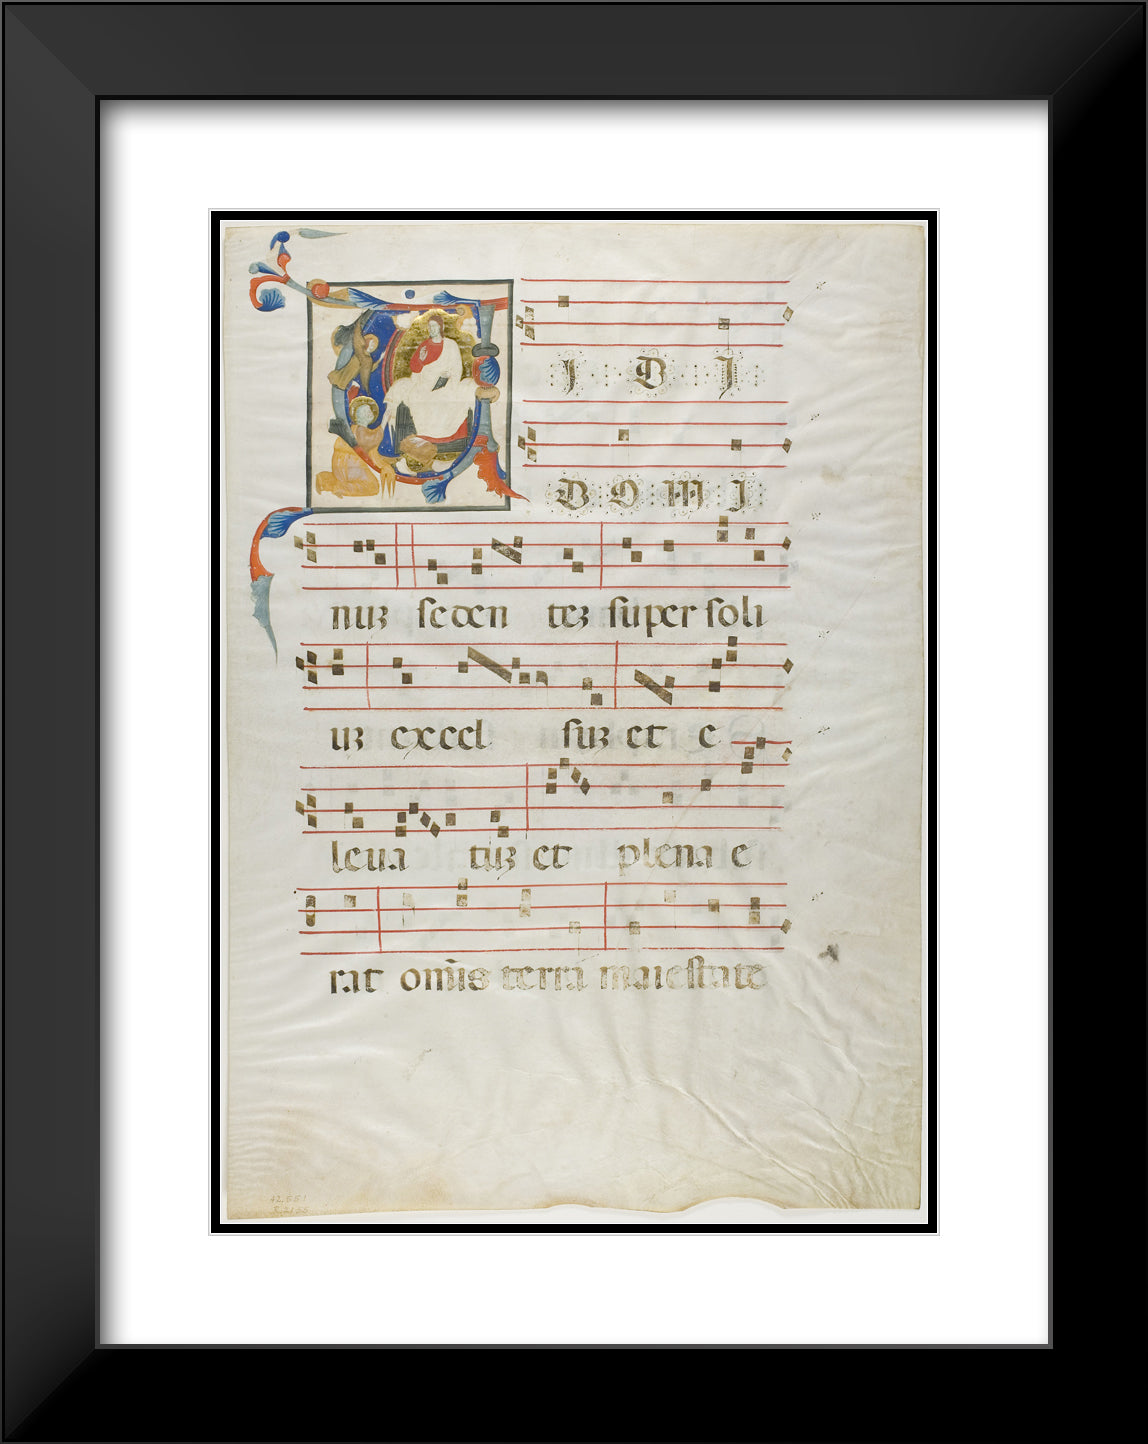 VIDI
DOMI
nuz seden tez super soli
uz excel suz et e
leua tuz et plena e
rat om̄is terra maiestate
42.551